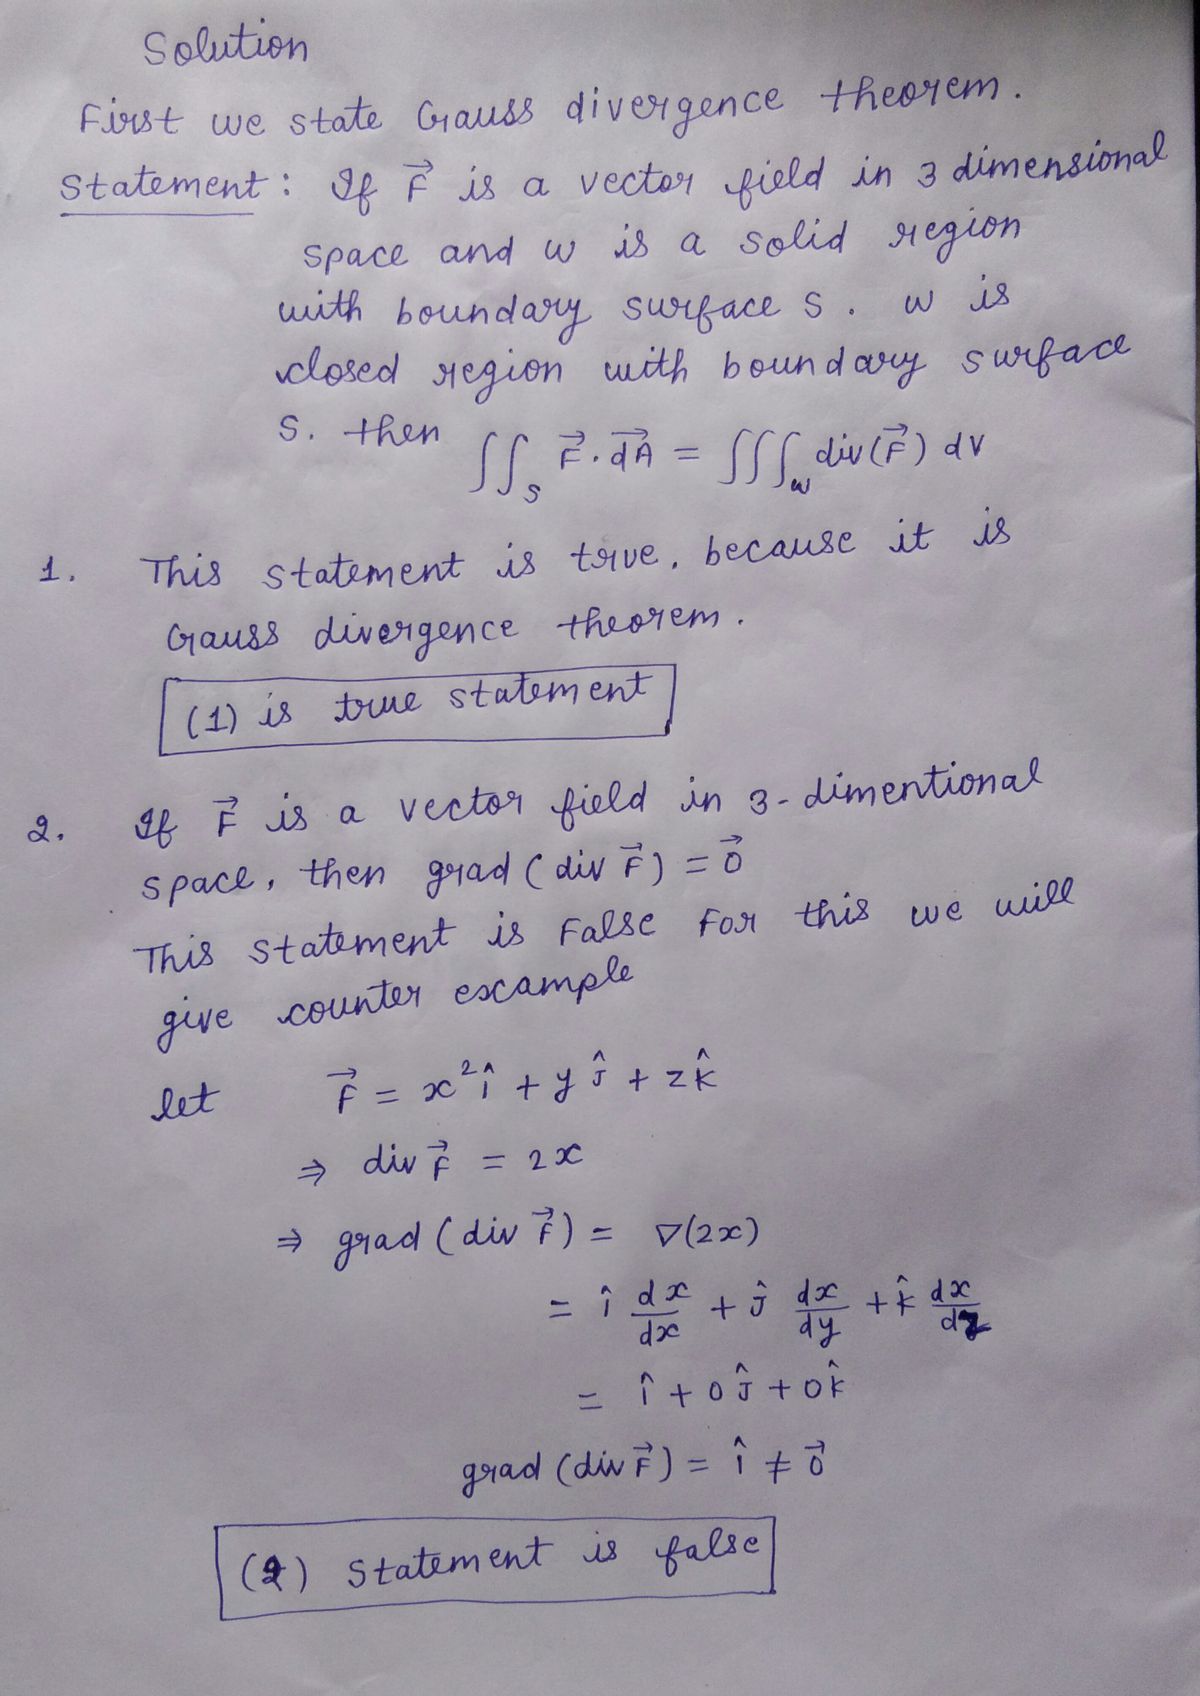 Solution
First we state Gauss divergence theorem.
Statement: If F⃗ is a vector field in 3 dimensional
space and w is a solid region
with boundary surface S. w is
closed region with boundary surface
S. then ∫∫_S F⃗·dA⃗ = ∫∫∫_w div(F⃗) dV
1. This statement is true, because it is
Gauss divergence theorem.
(1) is true statement
2. If F⃗ is a vector field in 3-dimentional
space, then grad (div F⃗) = 0⃗
This statement is False For this we will
give counter example
let F⃗ = x²î + yĵ + zk̂
⇒ div F⃗ = 2x
⇒ grad (div F⃗) = ∇(2x)
= î dx/dx + ĵ dx/dy + k̂ dx/dz
= î + 0ĵ + 0k̂
grad (div F⃗) = î ≠ 0⃗
(2) Statement is false